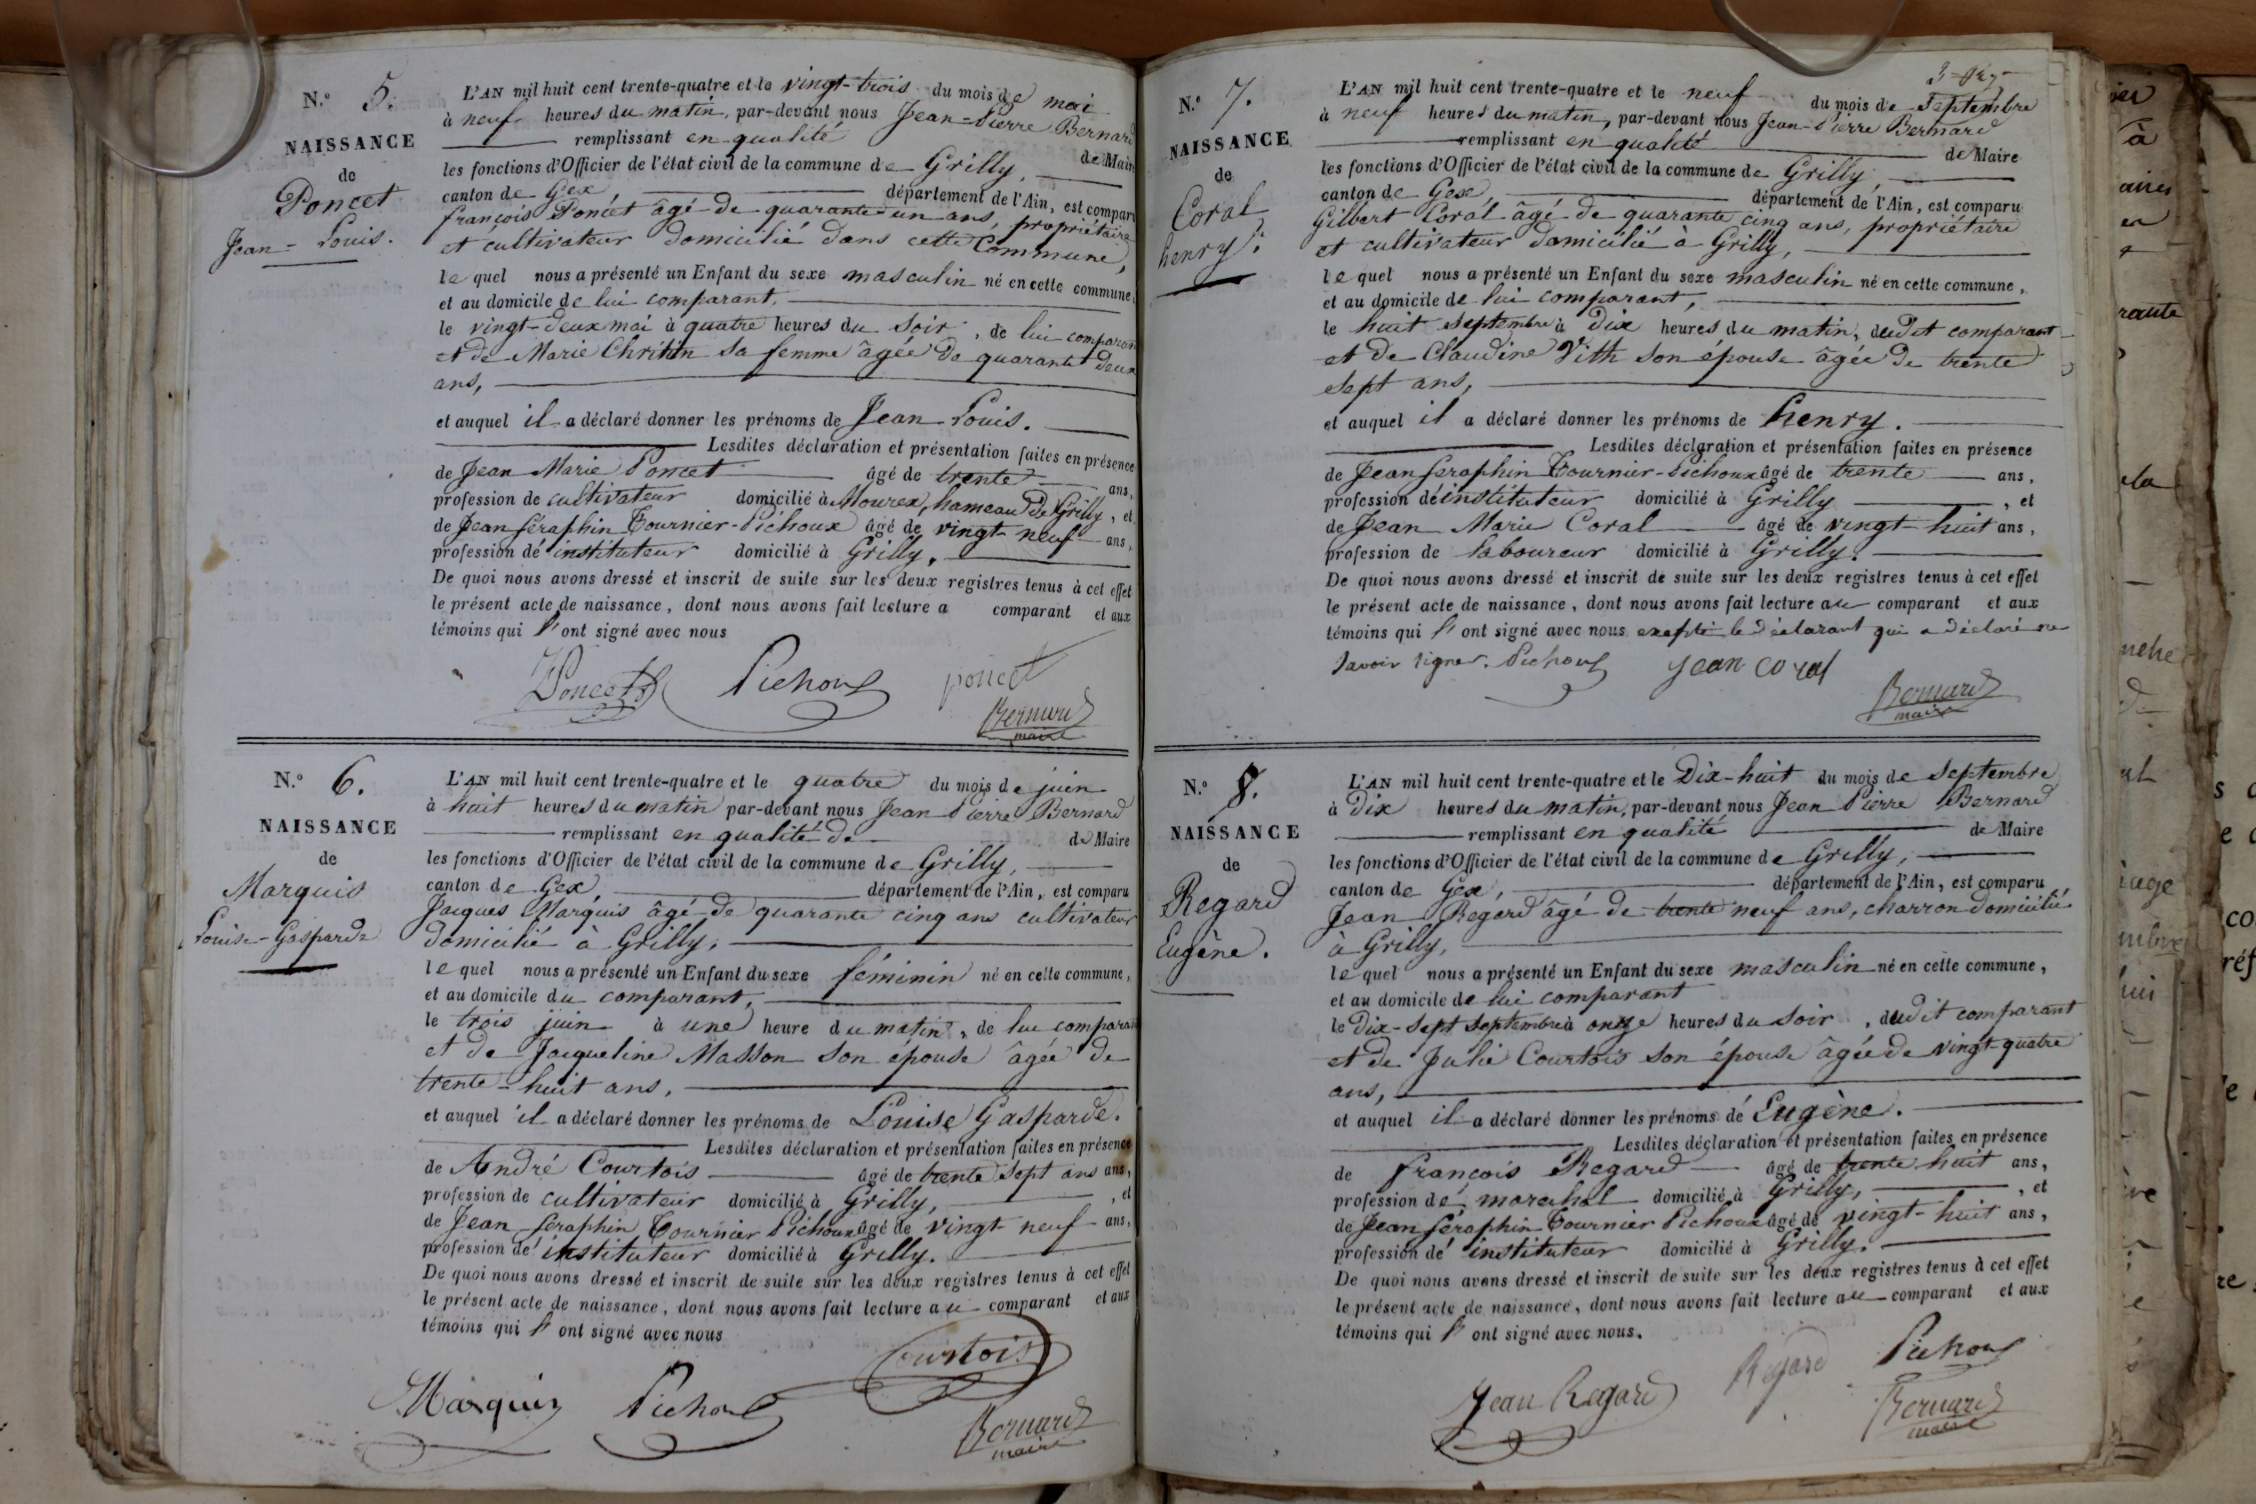 N.º 5.
NAISSANCE
de
Poncet
Jean-Louis.
L'AN mil huit cent trente-quatre et le vingt-trois du mois de mai
à neuf heures du matin, par-devant nous Jean-Pierre Bernard
remplissant en qualité de Maire
les fonctions d'Officier de l'état civil de la commune de Grilly,
canton de Gex, département de l'Ain, est comparu
françois Poncet âgé de quarante un ans, propriétaire
et cultivateur domicilié dans cette Commune,
lequel nous a présenté un Enfant du sexe masculin né en cette commune,
et au domicile de lui comparant,
le vingt-deux mai à quatre heures du soir, de lui comparant
et de Marie Chritin sa femme âgée de quarante deux
ans,
et auquel il a déclaré donner les prénoms de Jean Louis.
Lesdites déclaration et présentation faites en présence
de Jean Marie Poncet âgé de trente ans,
profession de cultivateur domicilié à Mourex, hameau de Grilly, et
de Jean Séraphin Tournier-Pichoux âgé de vingt-neuf ans,
profession de instituteur domicilié à Grilly.
De quoi nous avons dressé et inscrit de suite sur les deux registres tenus à cet effet
le présent acte de naissance, dont nous avons fait lecture a comparant et aux
témoins qui l'ont signé avec nous
Poncet Pichoux poncet
Bernard
maire
N.º 6.
NAISSANCE
de
Marquis
Louise-Gasparde
L'AN mil huit cent trente-quatre et le quatre du mois de juin
à huit heures du matin par-devant nous Jean Pierre Bernard
remplissant en qualité de de Maire
les fonctions d'Officier de l'état civil de la commune de Grilly,
canton de Gex, département de l'Ain, est comparu
Jacques Marquis âgé de quarante cinq ans cultivateur
domicilié à Grilly,
lequel nous a présenté un Enfant du sexe féminin né en cette commune,
et au domicile du comparant,
le trois juin à une heure du matin, de lui comparant
et de Jacqueline Masson son épouse âgée de
trente-huit ans,
et auquel il a déclaré donner les prénoms de Louise Gasparde.
Lesdites déclaration et présentation faites en présence
de André Courtois âgé de trente sept ans ans,
profession de cultivateur domicilié à Grilly, , et
de Jean Séraphin Tournier Pichoux âgé de vingt neuf ans,
profession de instituteur domicilié à Grilly.
De quoi nous avons dressé et inscrit de suite sur les deux registres tenus à cet effet
le présent acte de naissance, dont nous avons fait lecture au comparant et aux
témoins qui l'ont signé avec nous
Courtois
Marquis Pichoux
Bernard
maire
N.º 7.
NAISSANCE
de
Coral
henry.
L'AN mil huit cent trente-quatre et le neuf du mois de Septembre
à neuf heures du matin, par-devant nous Jean-Pierre Bernard
remplissant en qualité de Maire
les fonctions d'Officier de l'état civil de la commune de Grilly,
canton de Gex, département de l'Ain, est comparu
Gilbert Coral âgé de quarante cinq ans, propriétaire
et cultivateur domicilié à Grilly,
lequel nous a présenté un Enfant du sexe masculin né en cette commune,
et au domicile de lui comparant,
le huit septembre à dix heures du matin, dudit comparant
et de Claudine Vith son épouse âgée de trente
sept ans,
et auquel il a déclaré donner les prénoms de henry.
Lesdites déclaration et présentation faites en présence
de Jean Seraphin Tournier-Pichoux âgé de trente ans,
profession de instituteur domicilié à Grilly, et
de Jean Marie Coral âgé de vingt-huit ans,
profession de laboureur domicilié à Grilly.
De quoi nous avons dressé et inscrit de suite sur les deux registres tenus à cet effet
le présent acte de naissance, dont nous avons fait lecture au comparant et aux
témoins qui l'ont signé avec nous excepté le déclarant qui a déclaré ne
savoir signer. Pichoux Jean Coral
Bernard
maire
N.º 8.
NAISSANCE
de
Regard
Eugène.
L'AN mil huit cent trente-quatre et le Dix-huit du mois de septembre
à Dix heures du matin, par-devant nous Jean Pierre Bernard
remplissant en qualité de Maire
les fonctions d'Officier de l'état civil de la commune de Grilly,
canton de Gex, département de l'Ain, est comparu
Jean Regard âgé de trente neuf ans, charron domicilié
à Grilly,
lequel nous a présenté un Enfant du sexe masculin né en cette commune,
et au domicile de lui comparant
le Dix-sept septembre à onze heures du soir, dudit comparant
et de Julie Courtois son épouse âgée de vingt-quatre
ans,
et auquel il a déclaré donner les prénoms de Eugène.
Lesdites déclaration et présentation faites en présence
de françois Regard âgé de trente huit ans,
profession de marechal domicilié à Grilly, , et
de Jean Séraphin Tournier Pichoux âgé de vingt-huit ans,
profession de instituteur domicilié à Grilly.
De quoi nous avons dressé et inscrit de suite sur les deux registres tenus à cet effet
le présent acte de naissance, dont nous avons fait lecture au comparant et aux
témoins qui l'ont signé avec nous.
Jean Regard Regard Pichoux
Bernard
maire